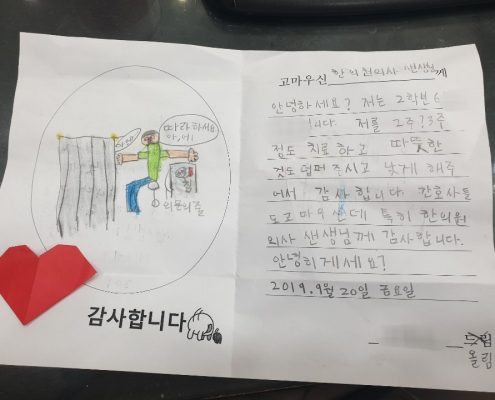 따라하세요
아~에~
침
의문의줄
감사합니다
고마우신 한의원의사 선생님께
안녕하세요? 저는 2학년 6
니다. 저를 2주?3주
정도 치료하고 따뜻한
것도 덮퍼 주시고 낫게 해주
어서 감사합니다. 간호사들
도 고마우신데 특히 한의원
의사 선생님께 감사합니다.
안녕히게세요?
2019.9월 20일 금요일
드림
올림